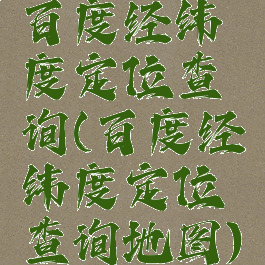 百度经纬
度定位查
询(百度经
纬度定位
查询地图)